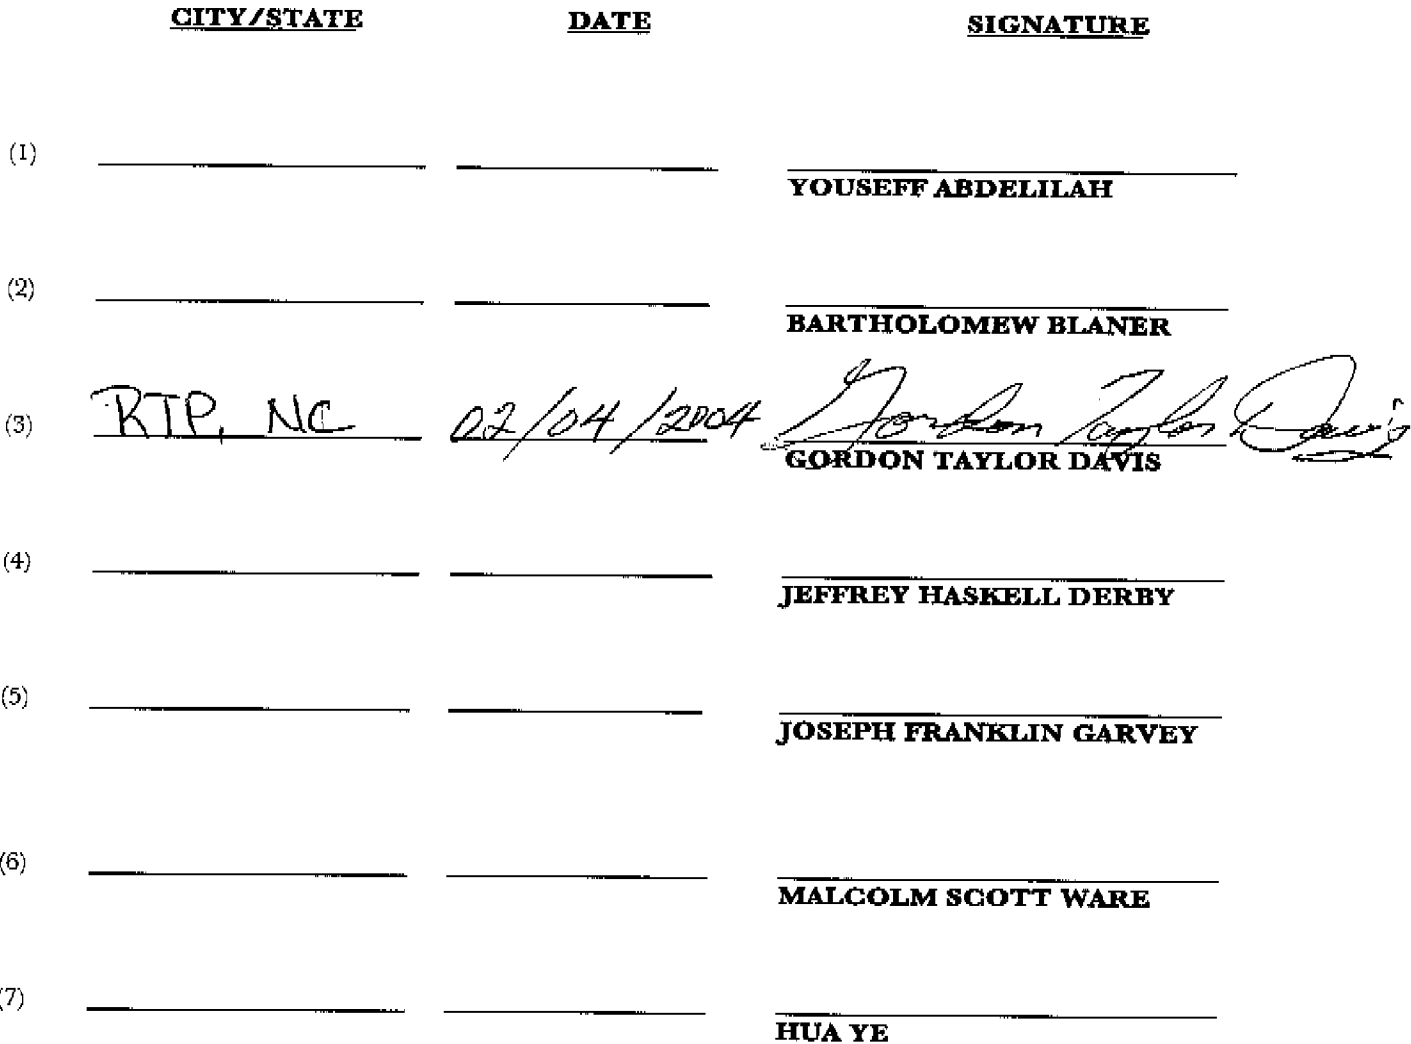 CITY/STATE DATE SIGNATURE
(1)
YOUSEFF ABDELILAH
(2)
BARTHOLOMEW BLANER
(3) RTP, NC 02/04/2004 Gordon Taylor Davis
GORDON TAYLOR DAVIS
(4)
JEFFREY HASKELL DERBY
(5)
JOSEPH FRANKLIN GARVEY
(6)
MALCOLM SCOTT WARE
(7)
HUA YE